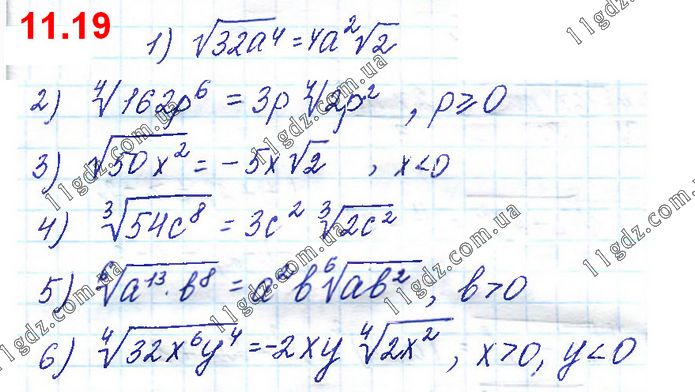 11.19
1) √32a⁴ = 4a²√2
2) ⁴√162p⁶ = 3p ⁴√2p² , p ≥ 0
3) √50x² = -5x√2 , x<0
4) ³√54c⁸ = 3c² ³√2c²
5) ⁶√a¹³·b⁸ = a²b ⁶√ab² , b>0
6) ⁴√32x⁶y⁴ = -2xy ⁴√2x² , x>0, y<0
11gdz.com.ua
11gdz.com.ua
11gdz.com.ua
11gdz.com.ua
11gdz.com.ua